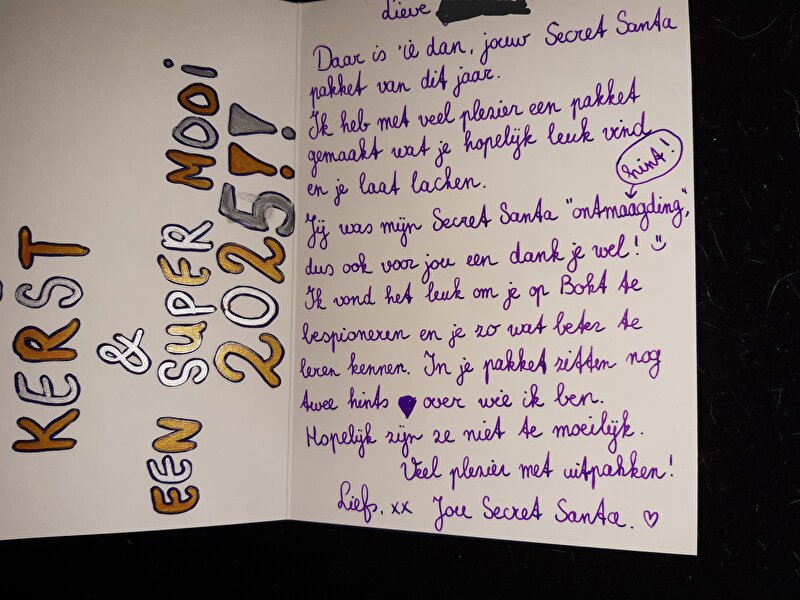 KERST
&
EEN SUPER MOOI
2025!!
Lieve
Daar is 'ie dan, jouw Secret Santa
pakket van dit jaar.
Ik heb met veel plezier een pakket
gemaakt wat je hopelijk leuk vind
en je laat lachen.
hint!
Jij was mijn Secret Santa "ontmaagding",
dus ook voor jou een dank je wel!
Ik vond het leuk om je op Bokt te
bespioneren en je zo wat beter te
leren kennen. In je pakket zitten nog
twee hints over wie ik ben.
Hopelijk zijn ze niet te moeilijk.
Veel plezier met uitpakken!
Liefs, xx Jou Secret Santa. ♡